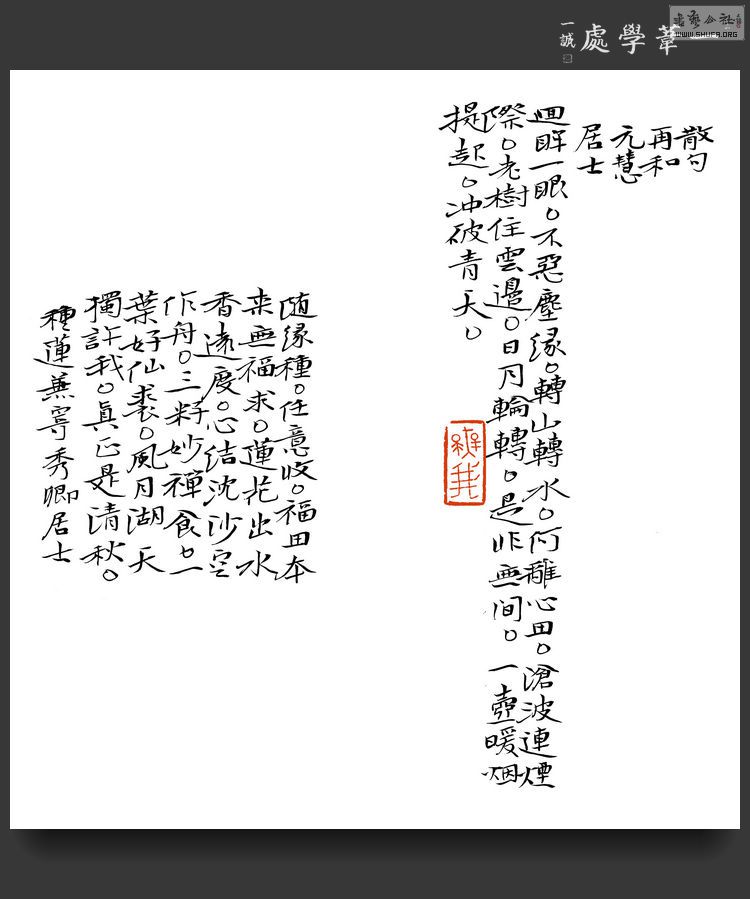 書藝公社
WWW.SHUFA.ORG
一葦學處
一誠
散句
再和
元慧
居士
迴眸一眼。不惡塵緣。轉山轉水。何離心田。滄波連煙
際。老樹住雲邊。日月輪轉。是非無间。一壺暖烟
提起。冲破青天。
随缘種。任意收。福田本
来無福求。蓮花出水
香遠度。心结沈沙空
作舟。三籽妙禪食。一
葉好仙裘。風月湖天
獨許我。真正是清秋。
種蓮兼寄秀卿居士